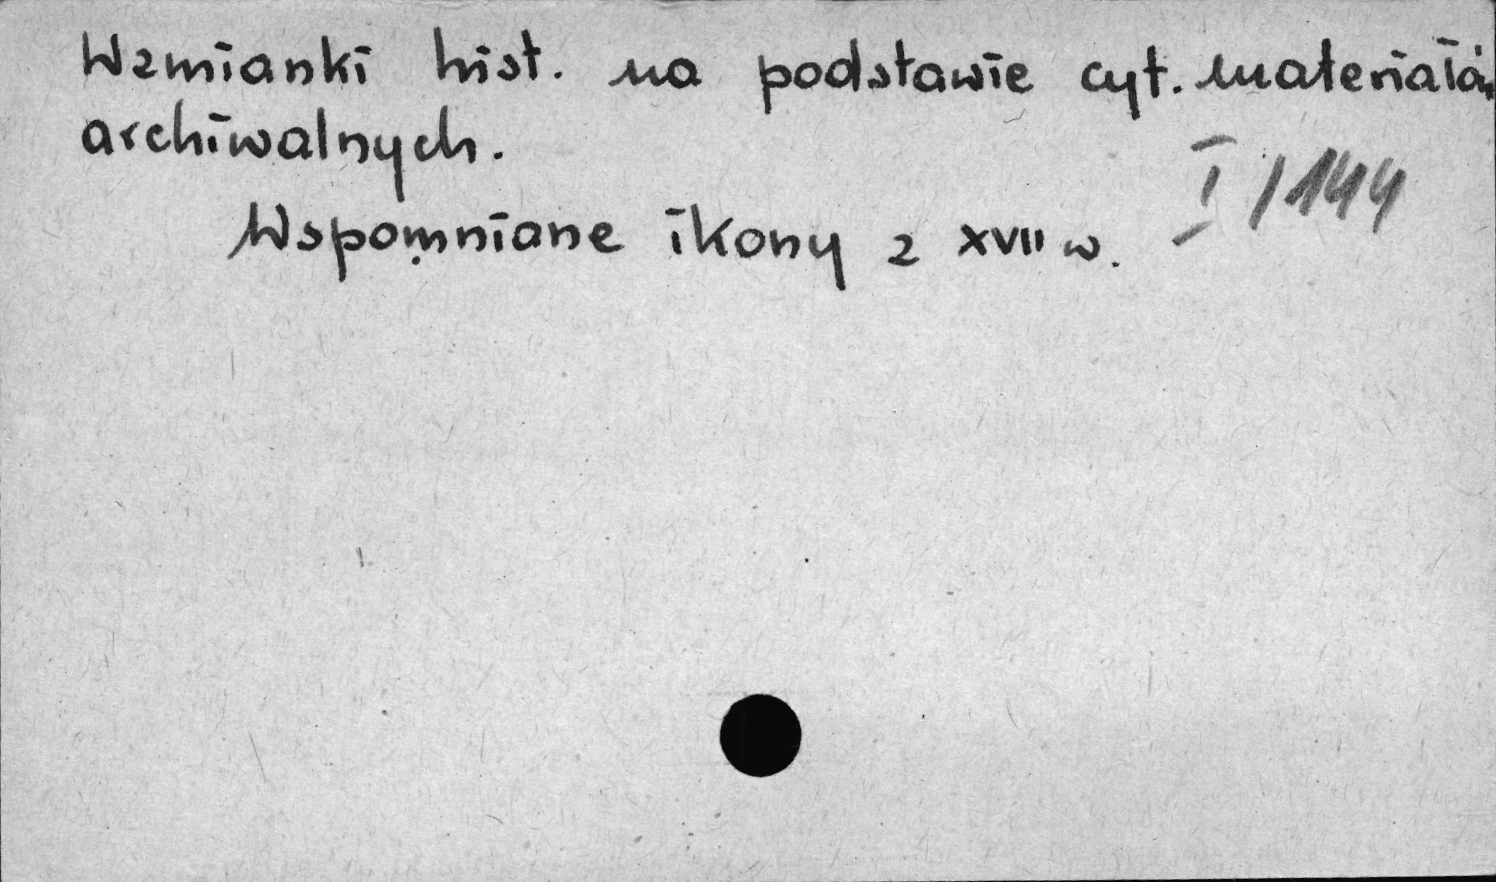 Wzmianki hist. na podstawie cyt. materiałów
archiwalnych.
I/144
Wspomniane ikony z XVII w.